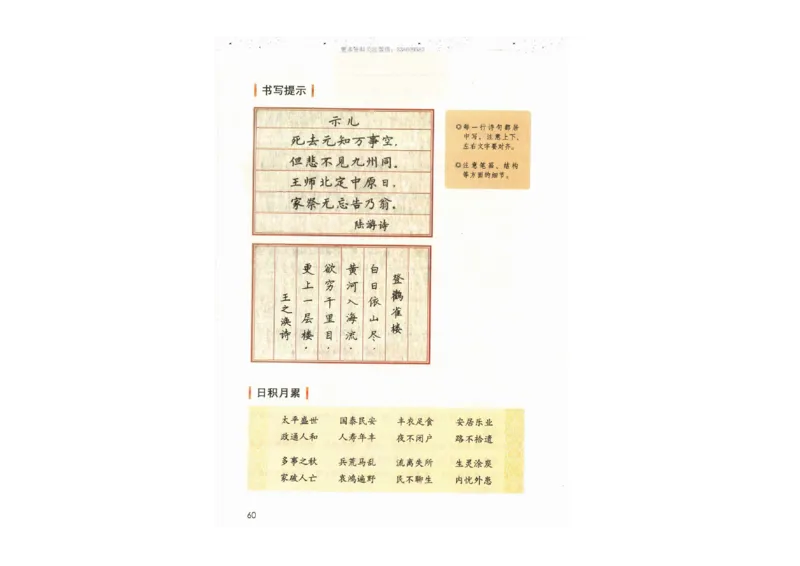 书写提示
示儿
死去元知万事空，
但悲不见九州同。
王师北定中原日，
家祭无忘告乃翁。
陆游诗
◎每一行诗句都居
中写，注意上下、
左右文字要对齐。
◎注意笔画、结构
等方面的细节。
登鹳雀楼
白日依山尽，
黄河入海流。
欲穷千里目，
更上一层楼。
王之涣诗
日积月累
太平盛世 国泰民安 丰衣足食 安居乐业
政通人和 人寿年丰 夜不闭户 路不拾遗
多事之秋 兵荒马乱 流离失所 生灵涂炭
家破人亡 哀鸿遍野 民不聊生 内忧外患
60